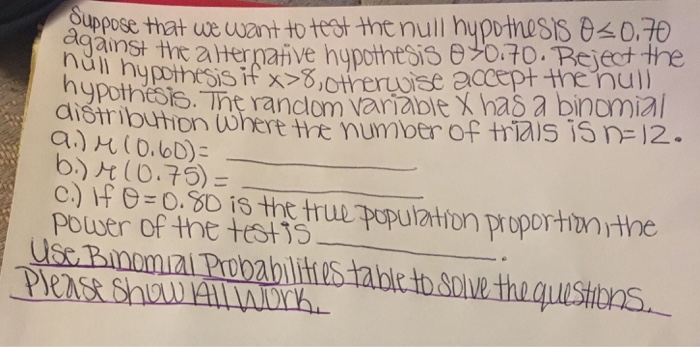 Suppose that we want to test the null hypothesis θ≤0.70
against the alternative hypothesis θ>0.70. Reject the
null hypothesis if x>8, otherwise accept the null
hypothesis. The random variable X has a binomial
distribution where the number of trials is n=12.
a.) π(0.60)= ________
b.) π(0.75)= ________
c.) If θ=0.80 is the true population proportion, the
power of the test is ________.
Use Binomial Probabilities table to solve the questions.
Please Show All Work.